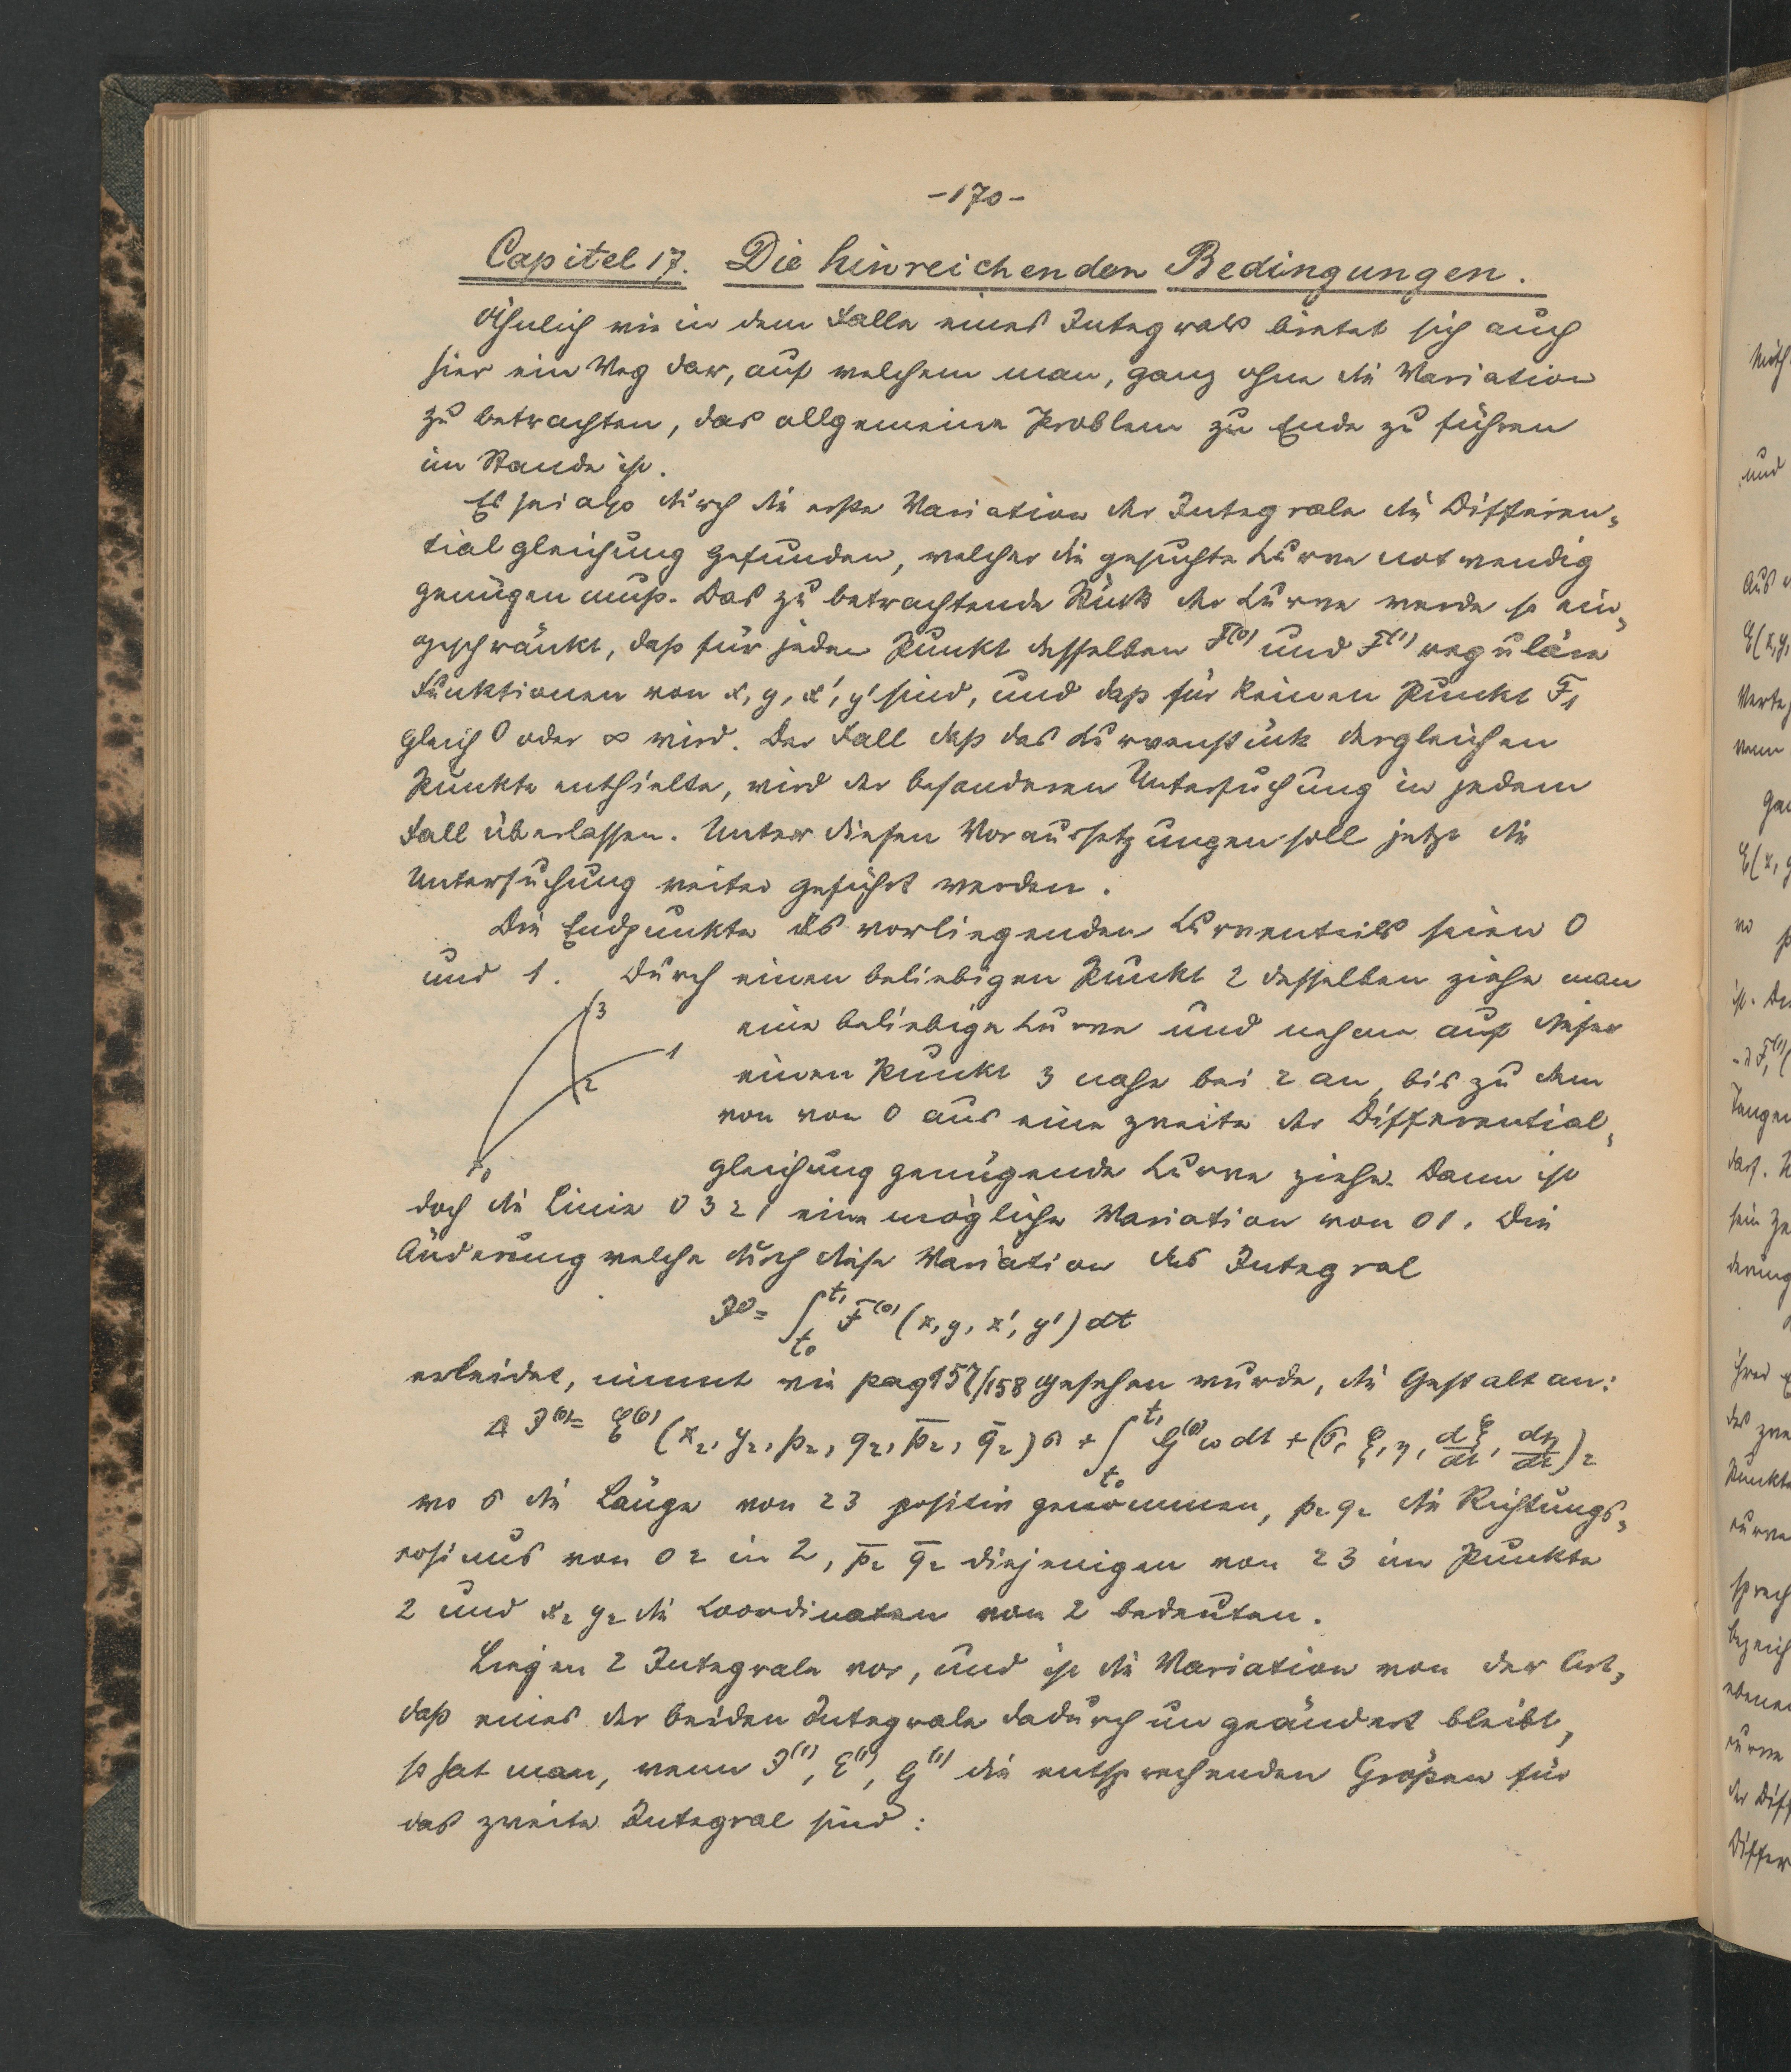 -170-
Capitel 17. Die hinreichenden Bedingungen.
Ähnlich wie in dem Falle eines Integrals bietet sich auch
hier ein Weg dar, auf welchem man, ganz ohne die Variation
zu betrachten, das allgemeine Problem zu Ende zu führen
im Stande ist.
Es sei also durch die erste Variation der Integrale die Differen-
tialgleichung gefunden, welcher die gesuchte Curve notwendig
genügen muß. Das zu betrachtende Stück der Curve werde so ein-
geschränkt, daß für jeden Punkt desselben F^(0) und F^(1) reguläre
Funktionen von x, y, x', y' sind, und daß für keinen Punkt F₁
gleich 0 oder ∞ wird. Der Fall daß das Curvenstück dergleichen
Punkte enthielte, wird der besonderen Untersuchung in jedem
Fall überlassen. Unter diesen Voraussetzungen soll jetzt die
Untersuchung weiter geführt werden.
Die Endpunkte des vorliegenden Curventeils seien 0
und 1. Durch einen beliebigen Punkt 2 desselben ziehe man
eine beliebige Curve und nehme auf dieser
einen Punkt 3 nahe bei 2 an, bis zu dem
von von 0 aus eine zweite der Differential-
gleichung genügende Curve ziehe. Dann ist
3
1
2
0
doch die Linie 0 3 2 1 eine mögliche Variation von 01. Die
Änderung welche durch diese Variation das Integral
J^(0) = ∫_{t₀}^{t₁} F^(0) (x, y, x', y') dt
erleidet, nimmt wie pag 157/158 gesehen wurde, die Gestalt an:
Δ J^(0) = ℰ^(0) (x₂, y₂, p₂, q₂, p̄₂, q̄₂) σ + ∫_{t₀}^{t₁} G^(0) w dt + (σ, ξ, η, dξ/dt, dη/dt)₂
wo σ die Länge von 23 positiv genommen, p₂ q₂ die Richtungs-
cosinus von 02 in 2, p̄₂ q̄₂ diejenigen von 23 im Punkte
2 und x₂ y₂ die Coordinaten von 2 bedeuten.
Liegen 2 Integrale vor, und ist die Variation von der Art,
daß eines der beiden Integrale dadurch ungeändert bleibt,
so hat man, wenn J^(1), ℰ^(1), G^(1) die entsprechenden Größen für
das zweite Integral sind: